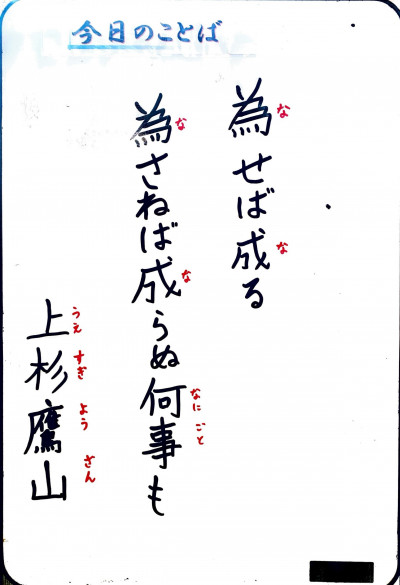 今日のことば
為せば成る
為さねば成らぬ何事も
上杉鷹山
な
な
な
な
なにごと
うえすぎようざん